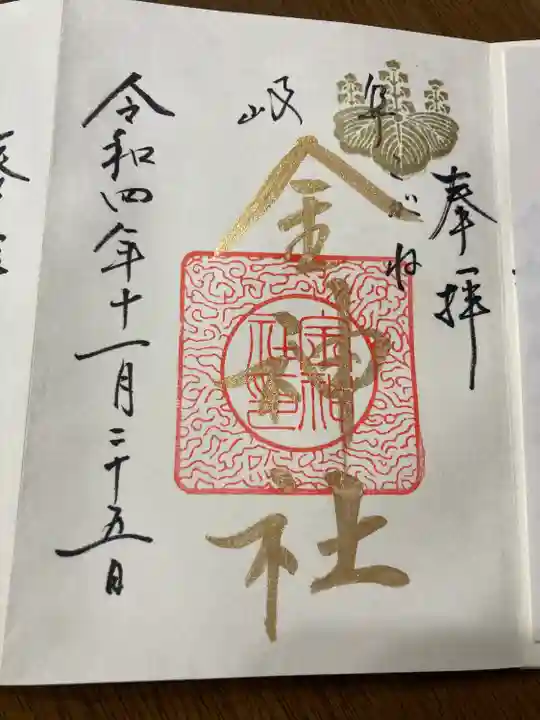 奉拝
岐阜こがね
金神社
令和四年十一月二十五日